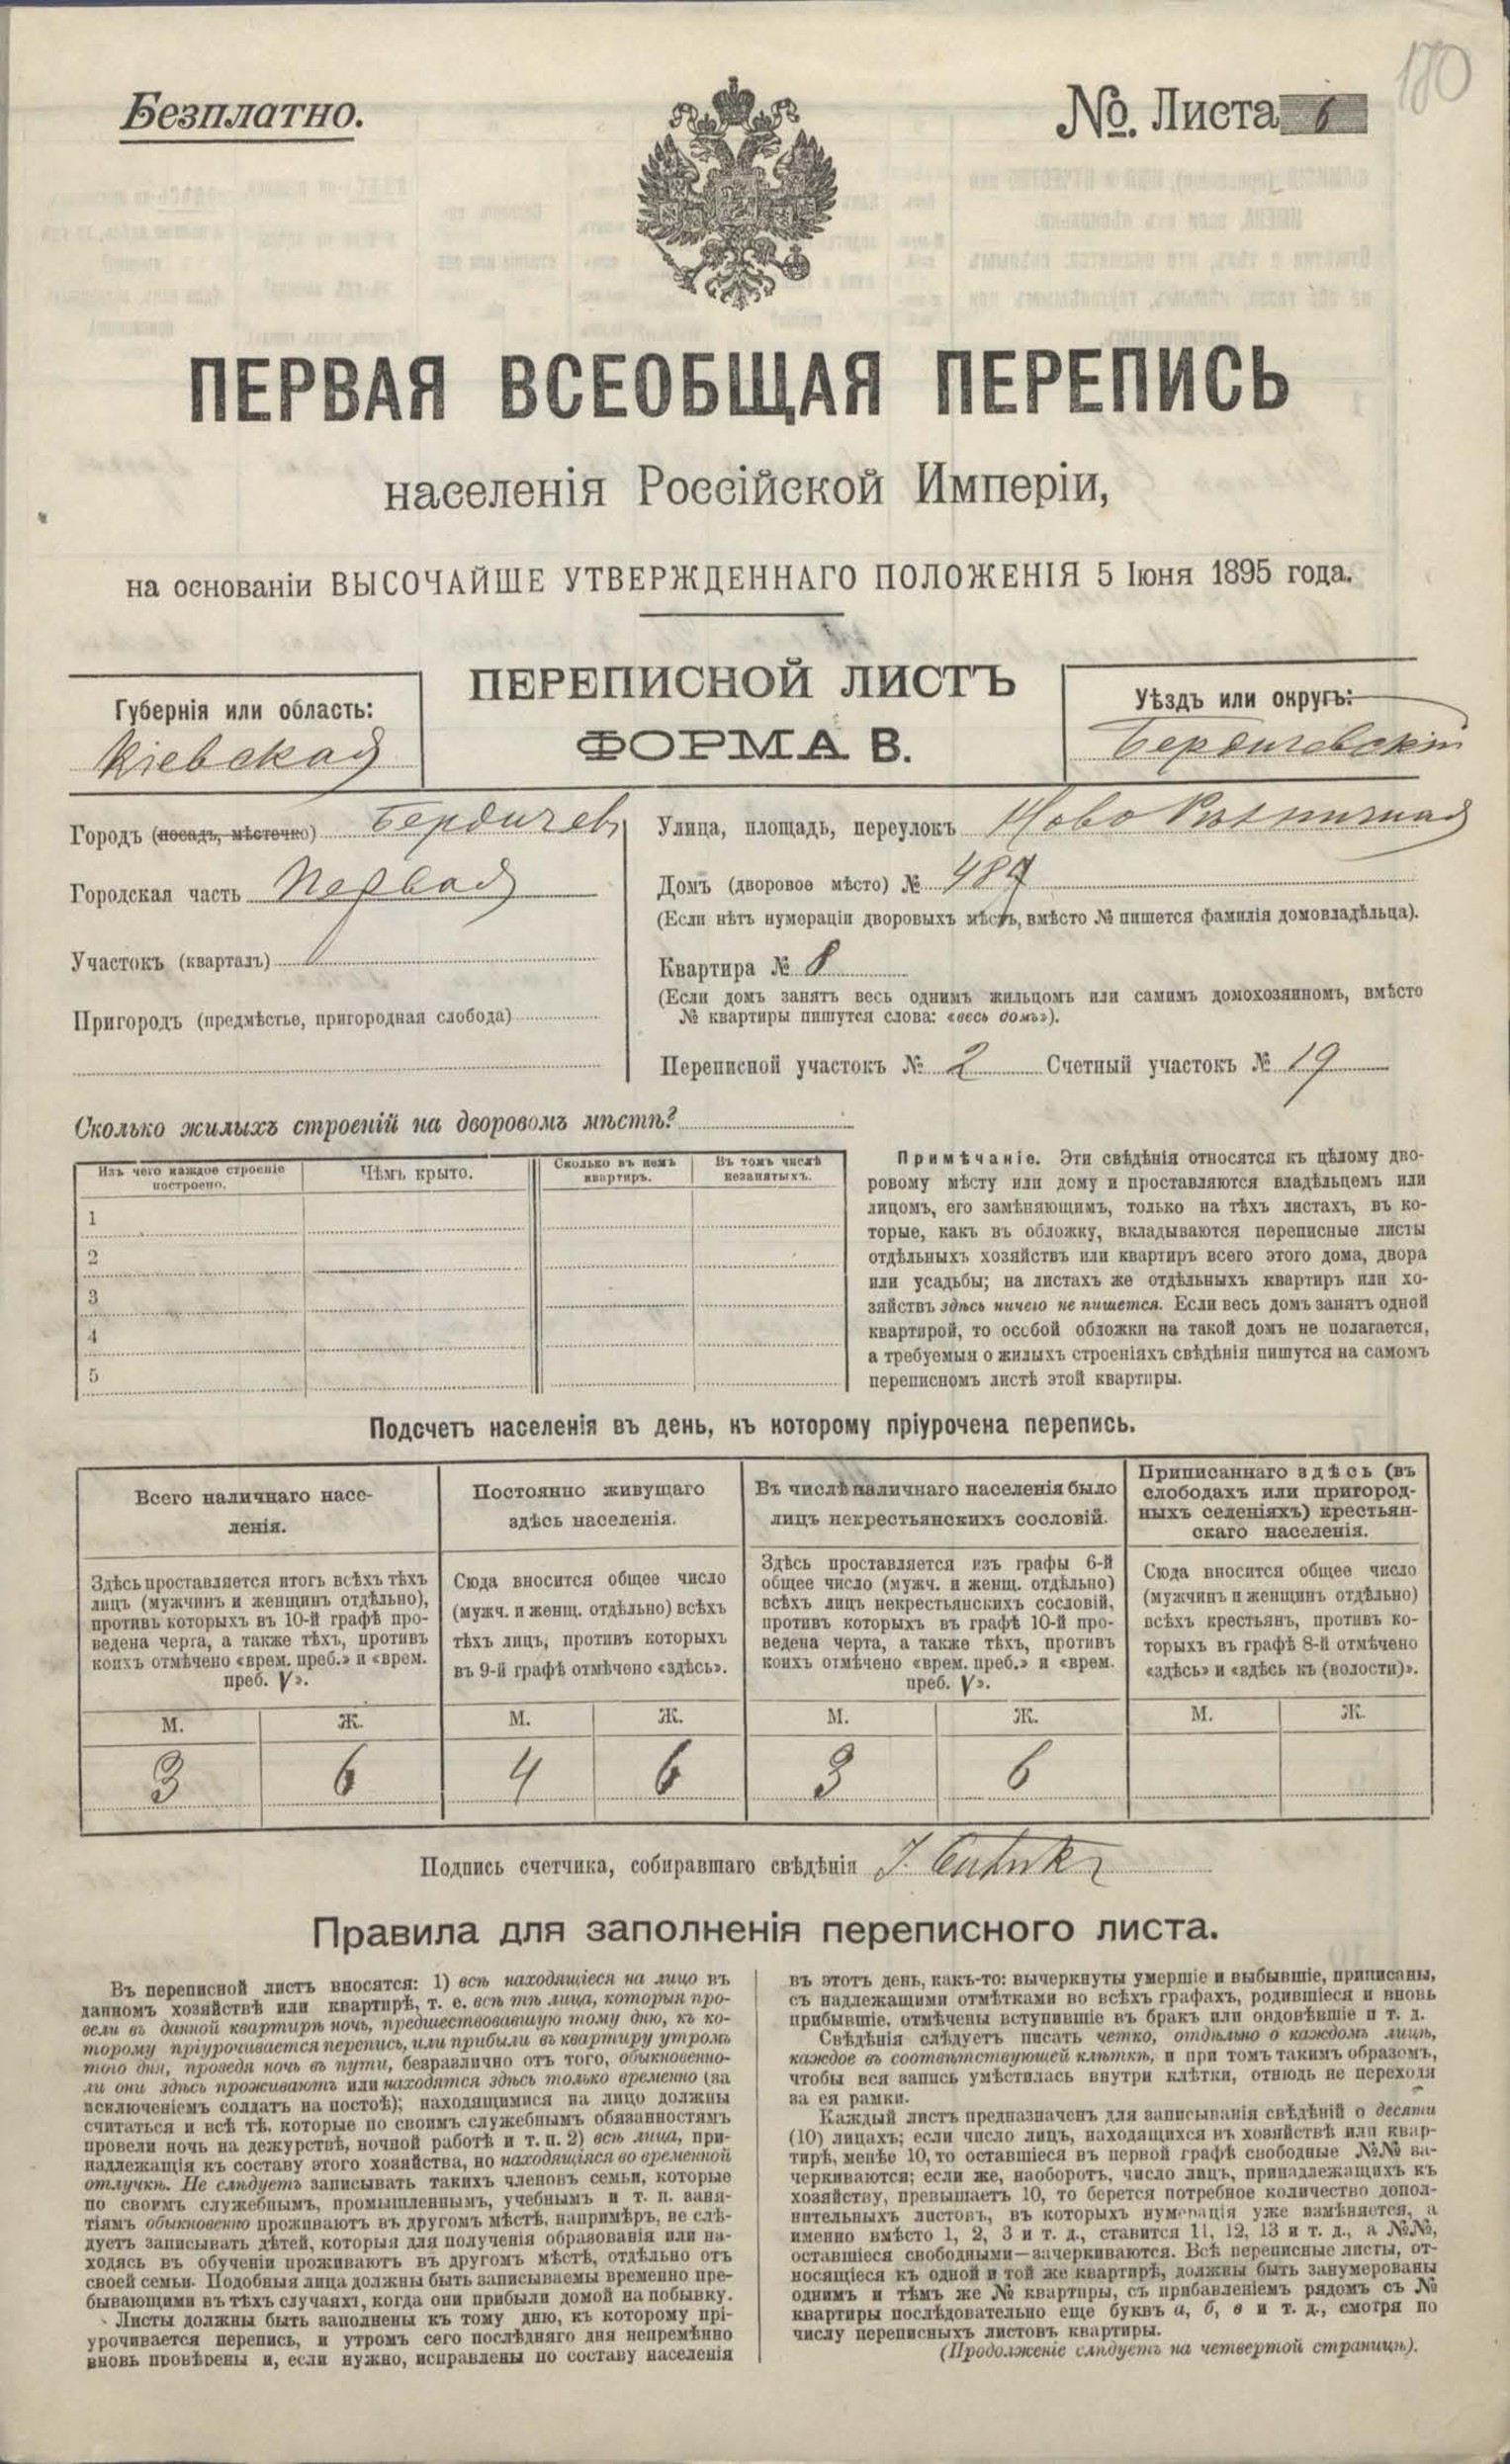 180
Безплатно.
№. Листа 6
ПЕРВАЯ ВСЕОБЩАЯ ПЕРЕПИСЬ
населенія Россійской Имперіи,
на основаніи ВЫСОЧАЙШЕ УТВЕРЖДЕННАГО ПОЛОЖЕНІЯ 5 Іюня 1895 года.
ПЕРЕПИСНОЙ ЛИСТЪ
ФОРМА В.
Губернія или область:
Кіевская
Уѣздъ или округъ:
Бердичевскій
Городъ (посадъ, мѣстечко) Бердичевъ
Городская часть Первая
Участокъ (кварталъ)
Пригородъ (предмѣстье, пригородная слобода)
Улица, площадь, переулокъ Ново
Домъ (дворовое мѣсто) № 489
(Если нѣтъ нумераціи дворовыхъ мѣстъ, вмѣсто № пишется фамилія домовладѣльца).
Квартира № 8
(Если домъ занятъ весь однимъ жильцомъ или самимъ домохозяиномъ, вмѣсто
№ квартиры пишутся слова: «весь домъ»).
Переписной участокъ № 2 Счетный участокъ № 19
Сколько жилыхъ строеній на дворовомъ мѣстѣ?
Изъ чего каждое строеніе
построено.
Чѣмъ крыто.
Сколько въ немъ
квартиръ.
Въ томъ числѣ
незанятыхъ.
1
2
3
4
5
Примѣчаніе. Эти свѣдѣнія относятся къ цѣлому дво-
ровому мѣсту или дому и проставляются владѣльцемъ или
лицомъ, его замѣняющимъ, только на тѣхъ листахъ, въ ко-
торые, какъ въ обложку, вкладываются переписные листы
отдѣльныхъ хозяйствъ или квартиръ всего этого дома, двора
или усадьбы; на листахъ же отдѣльныхъ квартиръ или хо-
зяйствъ здѣсь ничего не пишется. Если весь домъ занятъ одной
квартирой, то особой обложки на такой домъ не полагается,
а требуемыя о жилыхъ строеніяхъ свѣдѣнія пишутся на самомъ
переписномъ листѣ этой квартиры.
Подсчетъ населенія въ день, къ которому пріурочена перепись.
Всего наличнаго насе-
ленія.
Постоянно живущаго
здѣсь населенія.
Въ числѣ наличнаго населенія было
лицъ некрестьянскихъ сословій.
Приписаннаго здѣсь (въ
слободахъ или пригород-
ныхъ селеніяхъ) крестьян-
скаго населенія.
Здѣсь проставляется итогъ всѣхъ тѣхъ
лицъ (мужчинъ и женщинъ отдѣльно),
противъ которыхъ въ 10-й графѣ про-
ведена черта, а также тѣхъ, противъ
коихъ отмѣчено «врем. преб.» и «врем.
преб. V».
Сюда вносится общее число
(мужч. и женщ. отдѣльно) всѣхъ
тѣхъ лицъ, противъ которыхъ
въ 9-й графѣ отмѣчено «здѣсь».
Здѣсь проставляется изъ графы 6-й
общее число (мужч. и женщ. отдѣльно)
всѣхъ лицъ некрестьянскихъ сословій,
противъ которыхъ въ графѣ 10-й про-
ведена черта, а также тѣхъ, противъ
коихъ отмѣчено «врем. преб.» и «врем.
преб. V».
Сюда вносится общее число
(мужчинъ и женщинъ отдѣльно)
всѣхъ крестьянъ, противъ ко-
торыхъ въ графѣ 8-й отмѣчено
«здѣсь» и «здѣсь къ (волости)».
М. Ж. М. Ж. М. Ж. М. Ж.
3 6 4 6 3 6
Подпись счетчика, собиравшаго свѣдѣнія
Правила для заполненія переписного листа.
Въ переписной листъ вносятся: 1) всѣ находящіеся на лицо въ
данномъ хозяйствѣ или квартирѣ, т. е. всѣ тѣ лица, которыя про-
вели въ данной квартирѣ ночь, предшествовавшую тому дню, къ ко-
торому пріурочивается перепись, или прибыли въ квартиру утромъ
того дня, проведя ночь въ пути, безразлично отъ того, обыкновенно-
ли они здѣсь проживаютъ или находятся здѣсь только временно (за
исключеніемъ солдатъ на постоѣ); находящимися на лицо должны
считаться и всѣ тѣ, которые по своимъ служебнымъ обязанностямъ
провели ночь на дежурствѣ, ночной работѣ и т. п. 2) всѣ лица, при-
надлежащія къ составу этого хозяйства, но находящіяся во временной
отлучкѣ. Не слѣдуетъ записывать такихъ членовъ семьи, которые
по своимъ служебнымъ, промышленнымъ, учебнымъ и т. п. заня-
тіямъ обыкновенно проживаютъ въ другомъ мѣстѣ, напримѣръ, не слѣ-
дуетъ записывать дѣтей, которыя для полученія образованія или на-
ходясь въ обученіи проживаютъ въ другомъ мѣстѣ, отдѣльно отъ
своей семьи. Подобныя лица должны быть записываемы временно пре-
бывающими въ тѣхъ случаяхъ, когда они прибыли домой на побывку.
Листы должны быть заполнены къ тому дню, къ которому прі-
урочивается перепись, и утромъ сего послѣдняго дня непремѣнно
вновь провѣрены и, если нужно, исправлены по составу населенія
въ этотъ день, какъ-то: вычеркнуты умершіе и выбывшіе, приписаны,
съ надлежащими отмѣтками во всѣхъ графахъ, родившіеся и вновь
прибывшіе, отмѣчены вступившіе въ бракъ или овдовѣвшіе и т. д.
Свѣдѣнія слѣдуетъ писать четко, отдѣльно о каждомъ лицѣ,
каждое въ соотвѣтствующей клѣткѣ, и при томъ такимъ образомъ,
чтобы вся запись умѣстилась внутри клѣтки, отнюдь не переходя
за ея рамки.
Каждый листъ предназначенъ для записыванія свѣдѣній о десяти
(10) лицахъ; если число лицъ, находящихся въ хозяйствѣ или квар-
тирѣ, менѣе 10, то оставшіеся въ первой графѣ свободные №№ за-
черкиваются; если же, наоборотъ, число лицъ, принадлежащихъ къ
хозяйству, превышаетъ 10, то берется потребное количество допол-
нительныхъ листовъ, въ которыхъ нумерація уже измѣняется, а
именно вмѣсто 1, 2, 3 и т. д., ставится 11, 12, 13 и т. д., а №№,
оставшіеся свободными—зачеркиваются. Всѣ переписные листы, от-
носящіеся къ одной и той же квартирѣ, должны быть занумерованы
однимъ и тѣмъ же № квартиры, съ прибавленіемъ рядомъ съ №
квартиры послѣдовательно еще буквъ а, б, в и т. д., смотря по
числу переписныхъ листовъ квартиры.
(Продолженіе слѣдуетъ на четвертой страницѣ).